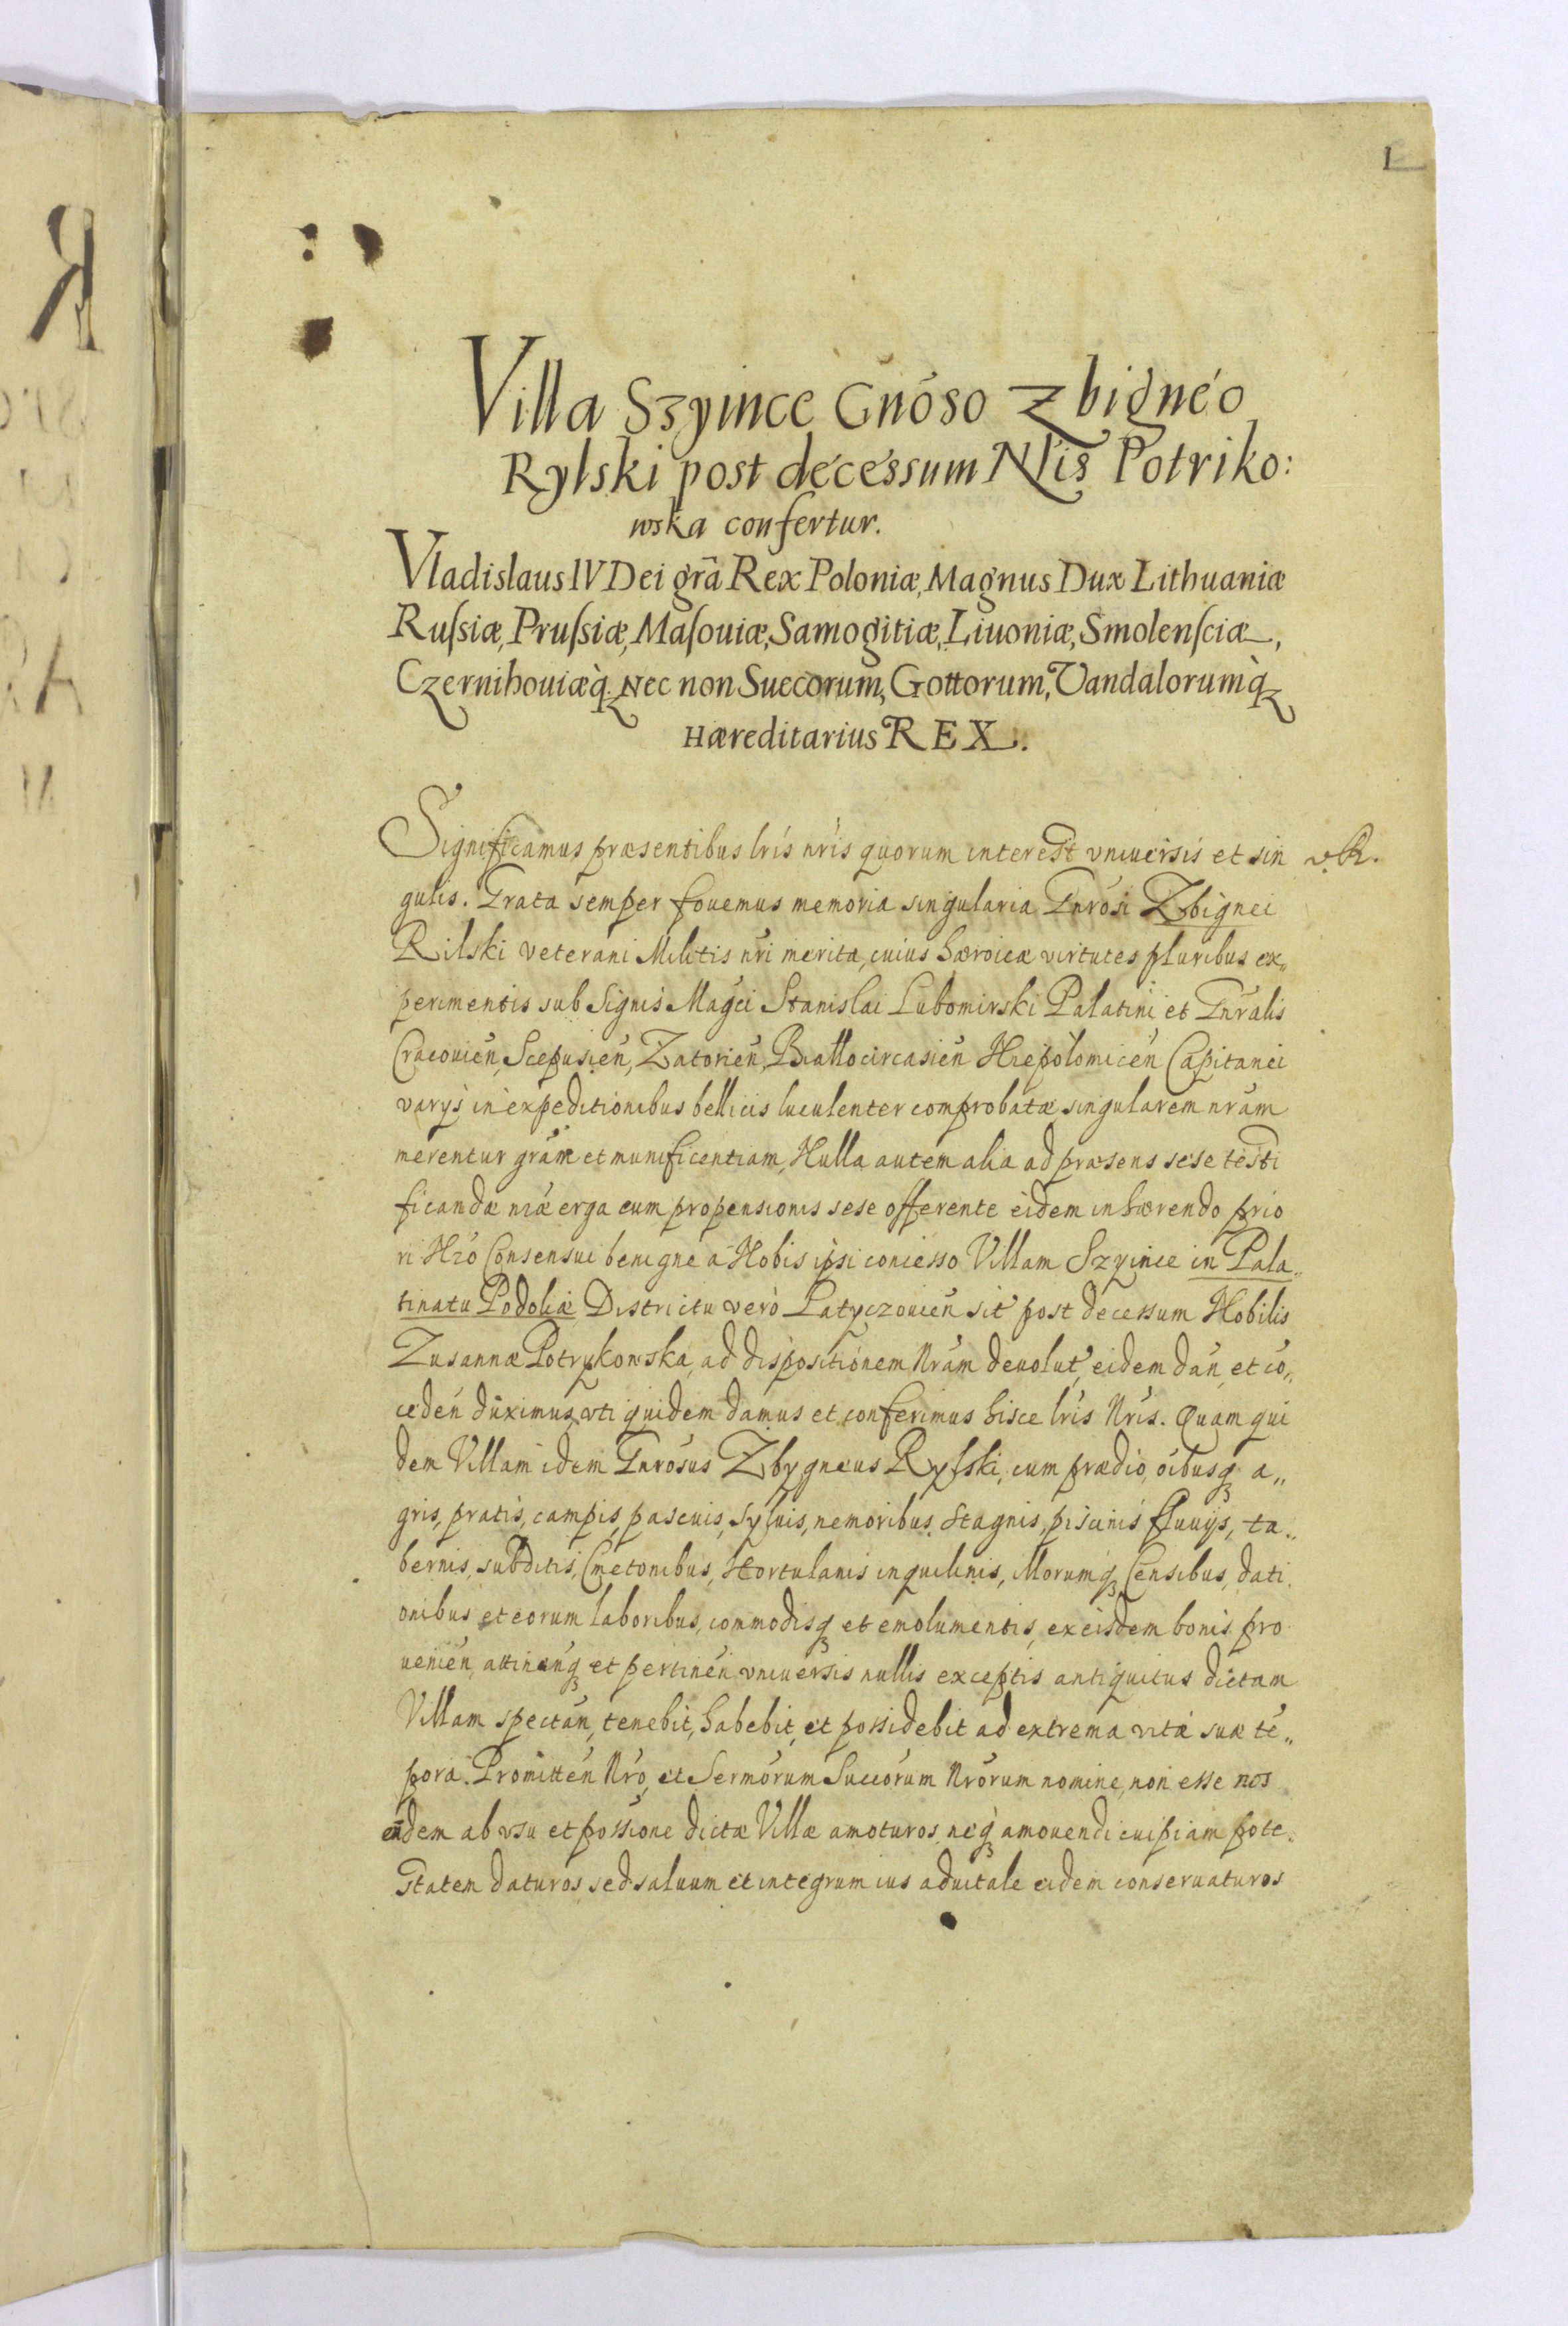 1
Villa Szyince Gnóso Zbigneo
Rylski post decessum Nlis Potriko:
wska confertur.
Vladislaus IV Dei grã Rex Poloniæ, Magnus Dux Lithuaniæ
Ruſsiæ, Pruſsiæ, Maſouiæ, Samogitiæ, Liuoniæ, Smolenſciæ,
Czernihouiæq̀ Nec non Suecorum, Gottorum, Vandalorumq̀
Hæreditarius REX.
Significamus præsentibus lris nris quorum interest vniuersis et sin
gulis. Grata semper fouemus memoria singularia Gnrosi Zbignei
Rilski veterani Militis nri merita, cuius hæroicæ virtutes pluribus ex„
perimentis sub Signis Magci Stanislai Lubomirski Palatini et Gnralis
Cracouien, Scepusien, Zatorien, Biallocircasien Niepolomicen Capitanei
varijs in expeditionibus bellicis luculenter comprobatæ singularem nram
merentur grãm et munificentiam, Nulla autem alia ad præsens sese testi
ficandæ nræ erga eum propensionis sese offerente eidem inhærendo prio
ri Nro Consensui benigne a Nobis ipsi concesso Villam Szyince in Pala„
tinatu Podoliæ Districtu vero Latyczouien sit post decessum Nobilis
Zusannæ Potrykowska, ad dispositionem Nram deuolut, eidem dan, et co„
ceden duximus, vti quidem damus et conferimus hisce lris Nris. Quam qui
dem Villam idem Gnrosus Zbygneus Rylski, cum prædio, oibusq a„
gris, pratis, campis, pascuis, syluis, nemoribus, stagnis, piscinis fluuijs, ta„
bernis, subditis, Cmetonibus, Hortulanis inquilinis, illorumq Censibus, dati
onibus et eorum laboribus, commodisq et emolumentis, ex eisdem bonis pro
uenien, attinenq et pertinen vniuersis nullis exceptis antiquitus dictam
Villam spectan, tenebit, habebit, et possidebit ad extrema vitæ suæ te„
pora. Promitten Nro, et Sermorum Succorum Nrorum nomine, non esse nos
eũdem ab vsu et possione dictæ Villæ amoturos, neq amouendi cuipiam pote„
statem daturos, sed saluum et integrum ius aduitale eidem conseruaturos